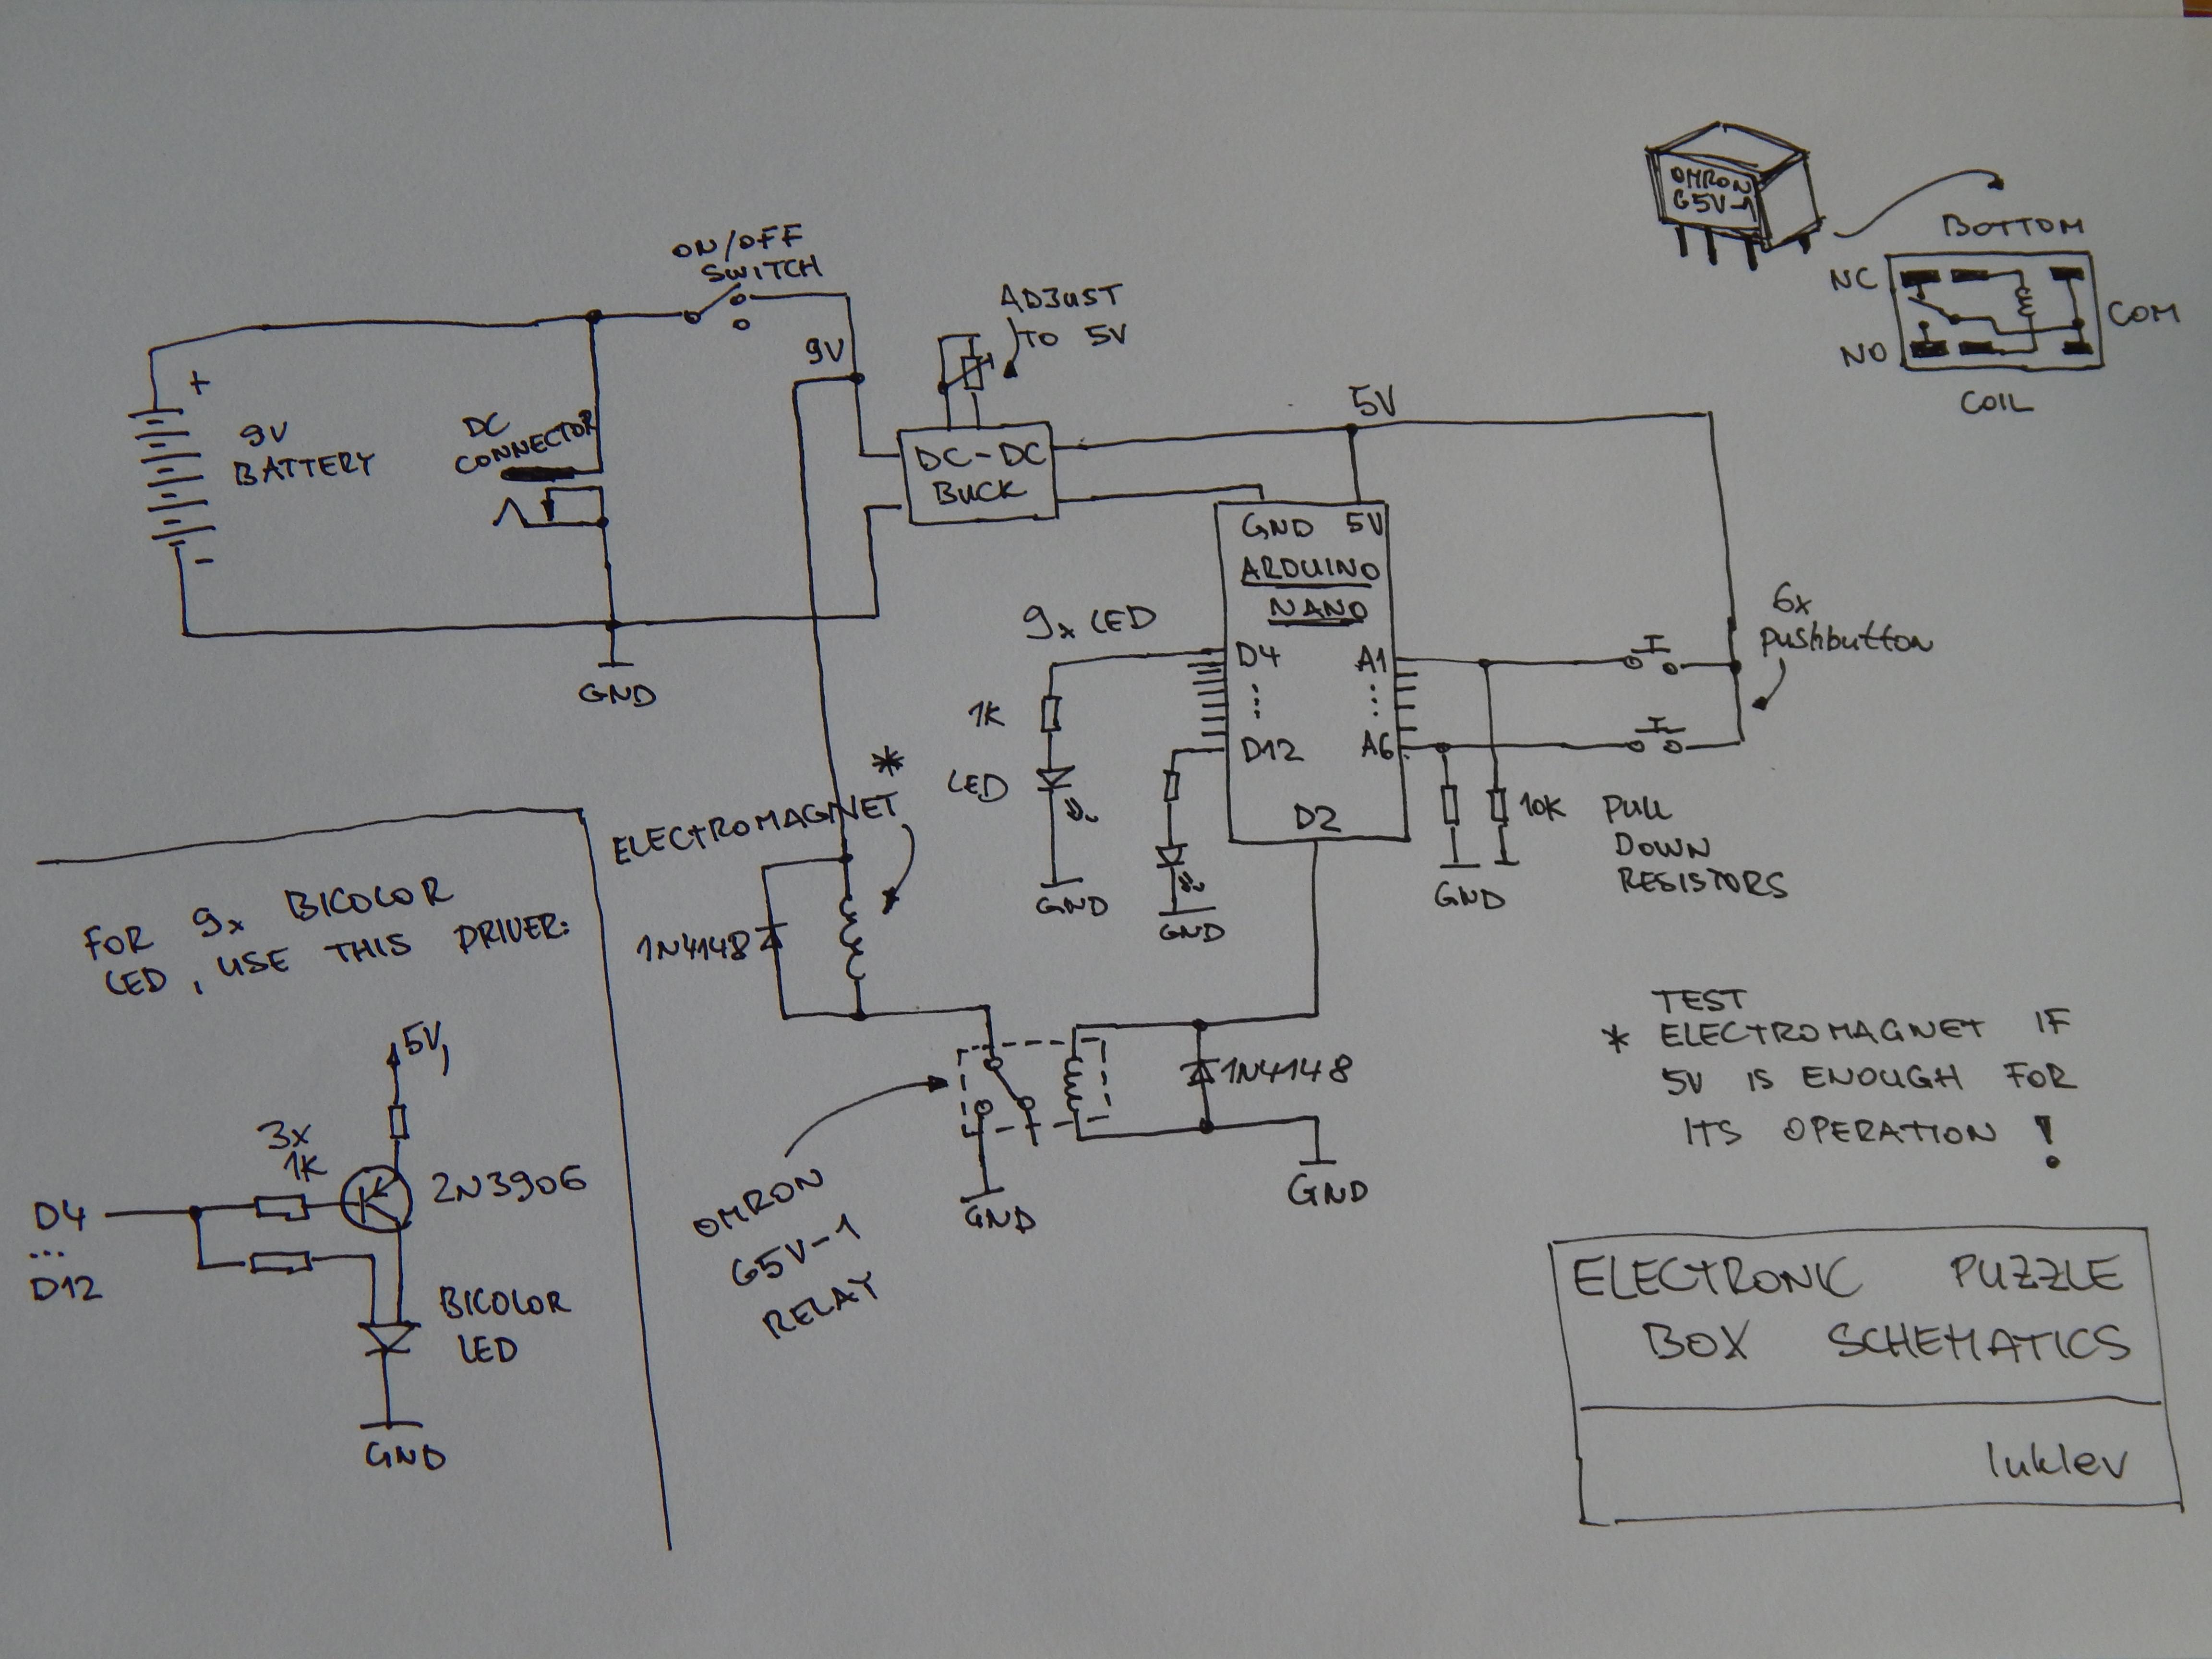 OMRON
G5V-1
BOTTOM
NC
COM
NO
COIL
ON/OFF
SWITCH
ADJUST
TO 5V
9V
+
9V
BATTERY
-
DC
CONNECTOR
DC-DC
BUCK
5V
GND 5V
ARDUINO
NANO
D4 A1
D12 A6
D2
9x LED
1K
LED
GND
GND
6x
pushbutton
10K
PULL
DOWN
RESISTORS
GND
GND
*
ELECTROMAGNET
1N4148
1N4148
GND
GND
OMRON
G5V-1
RELAY
TEST
* ELECTROMAGNET IF
5V IS ENOUGH FOR
ITS OPERATION !
FOR 9x BICOLOR
LED, USE THIS DRIVER:
5V
3x
1K
2N3906
D4
...
D12
BICOLOR
LED
GND
ELECTRONIC PUZZLE
BOX SCHEMATICS
luklev